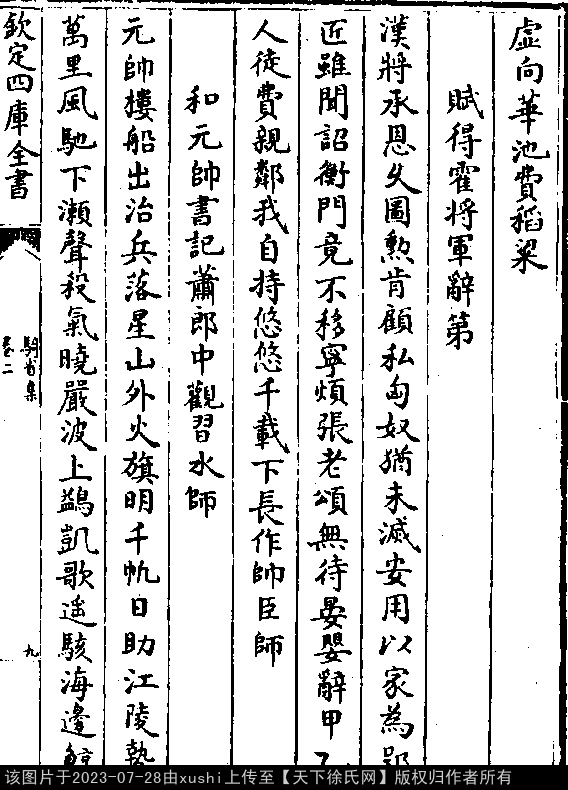 虛向華池費稻粱
賦得霍将軍辭第
漢將承恩久圖勲肯顧私匈奴猶未滅安用以家為郢
匠雖聞詔衡門竟不移寧煩張老頌無待晏嬰辭甲乙
人徒費親鄰我自持悠悠千載下長作帥臣師
和元帥書記蕭郎中觀習水師
元帥樓船出治兵落星山外火旗明千帆日助江陵埶
萬里風馳下瀨聲殺氣曉嚴波上鷁凱歌遥駭海邊鯨
欽定四庫全書
騎省集
卷二
九
该图片于2023-07-28由xushi上传至【天下徐氏网】版权归作者所有